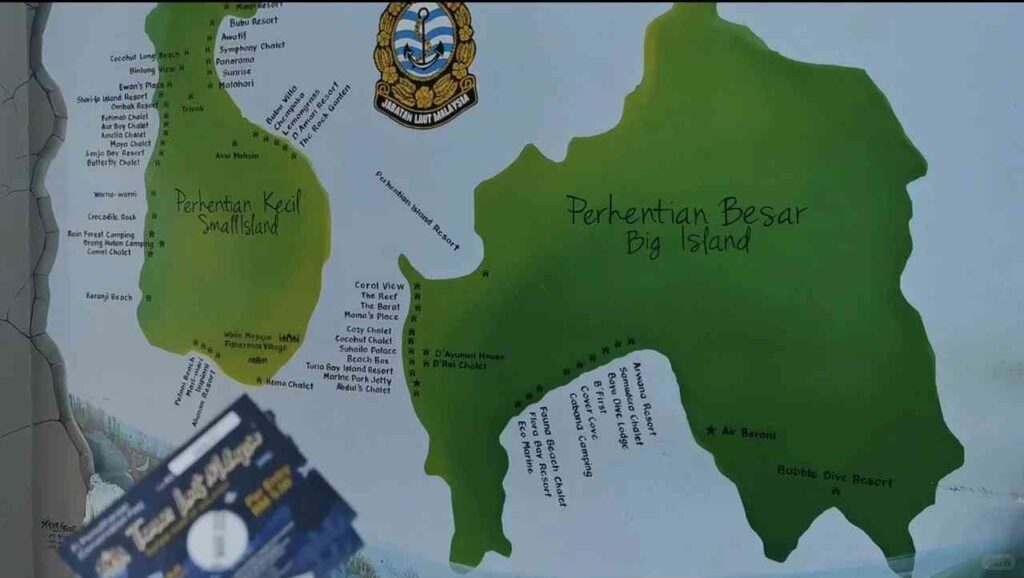 Bubu Resort
Awatif
Symphony Chalet
Panorama
Sunrise
Matahari
Cocohut Long Beach
Bintang View
Ewan's Place
Shari-la Island Resort
Ombak Resort
Tivoli
Fatimah Chalet
Aur Bay Chalet
Amelia Chalet
Maya Chalet
Senja Bay Resort
Butterfly Chalet
Bubu Villa
Chempaka
Lemongrass
D'Amuri Resort
The Rock Garden
Aina Mohsin
JABATAN LAUT MALAYSIA
Perhentian Kecil
Small Island
Warna-warni
Crocodile Rock
Rain Forest Camping
Orang Hutan Camping
Camel Chalet
Keranji Beach
White Mosque
Fisherman Village
Petani Beach
Mari-mari
Impiani
Alunan Resort
Nemo Chalet
Perhentian Island Resort
Perhentian Besar
Big Island
Coral View
The Reef
The Barat
Mama's Place
Cozy Chalet
Cocohut Chalet
Suhaila Palace
Beach Box
Tuna Bay Island Resort
Marine Park Jetty
Abdul's Chalet
D'Ayumni House
D'Rai Chalet
Arwana Resort
Samudera Chalet
Bayu Dive Lodge
B'First
Cabana Camping
Cover Cove
Fauna Beach Chalet
Flora Bay Resort
Eco Marine
Air Berani
Bubble Dive Resort